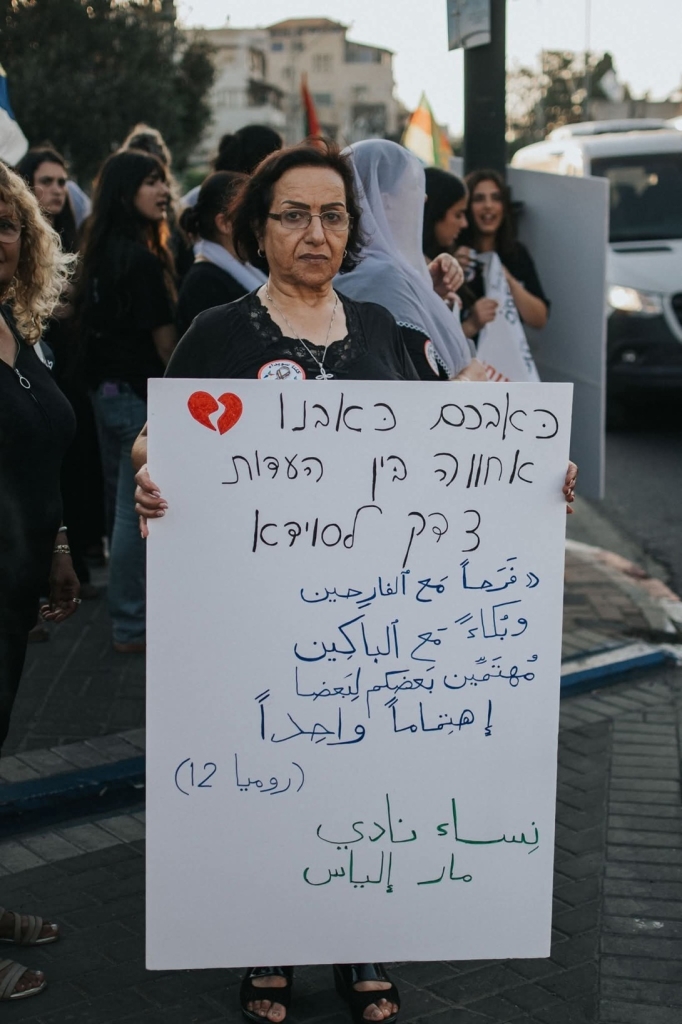 כאבכם כאבנו
אחווה בין העדות
צדק לסוידא
«فَرَحاً مَع ٱلفارِحين
وبُكاءً مَع ٱلباكِين
مُهتَمِّين بَعضكم لِبَعضا
إهتِماماً واحِداً
(روميا 12)
نِساء نادي
مار إلياس